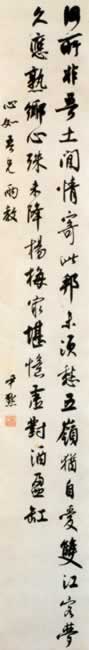 何所非吾土閒情寄此邦未須愁五嶺猶自愛雙江客夢
久應熟鄉心殊未降楊梅最堪憶虛對酒盈缸
心如吾兄雅教
尹默